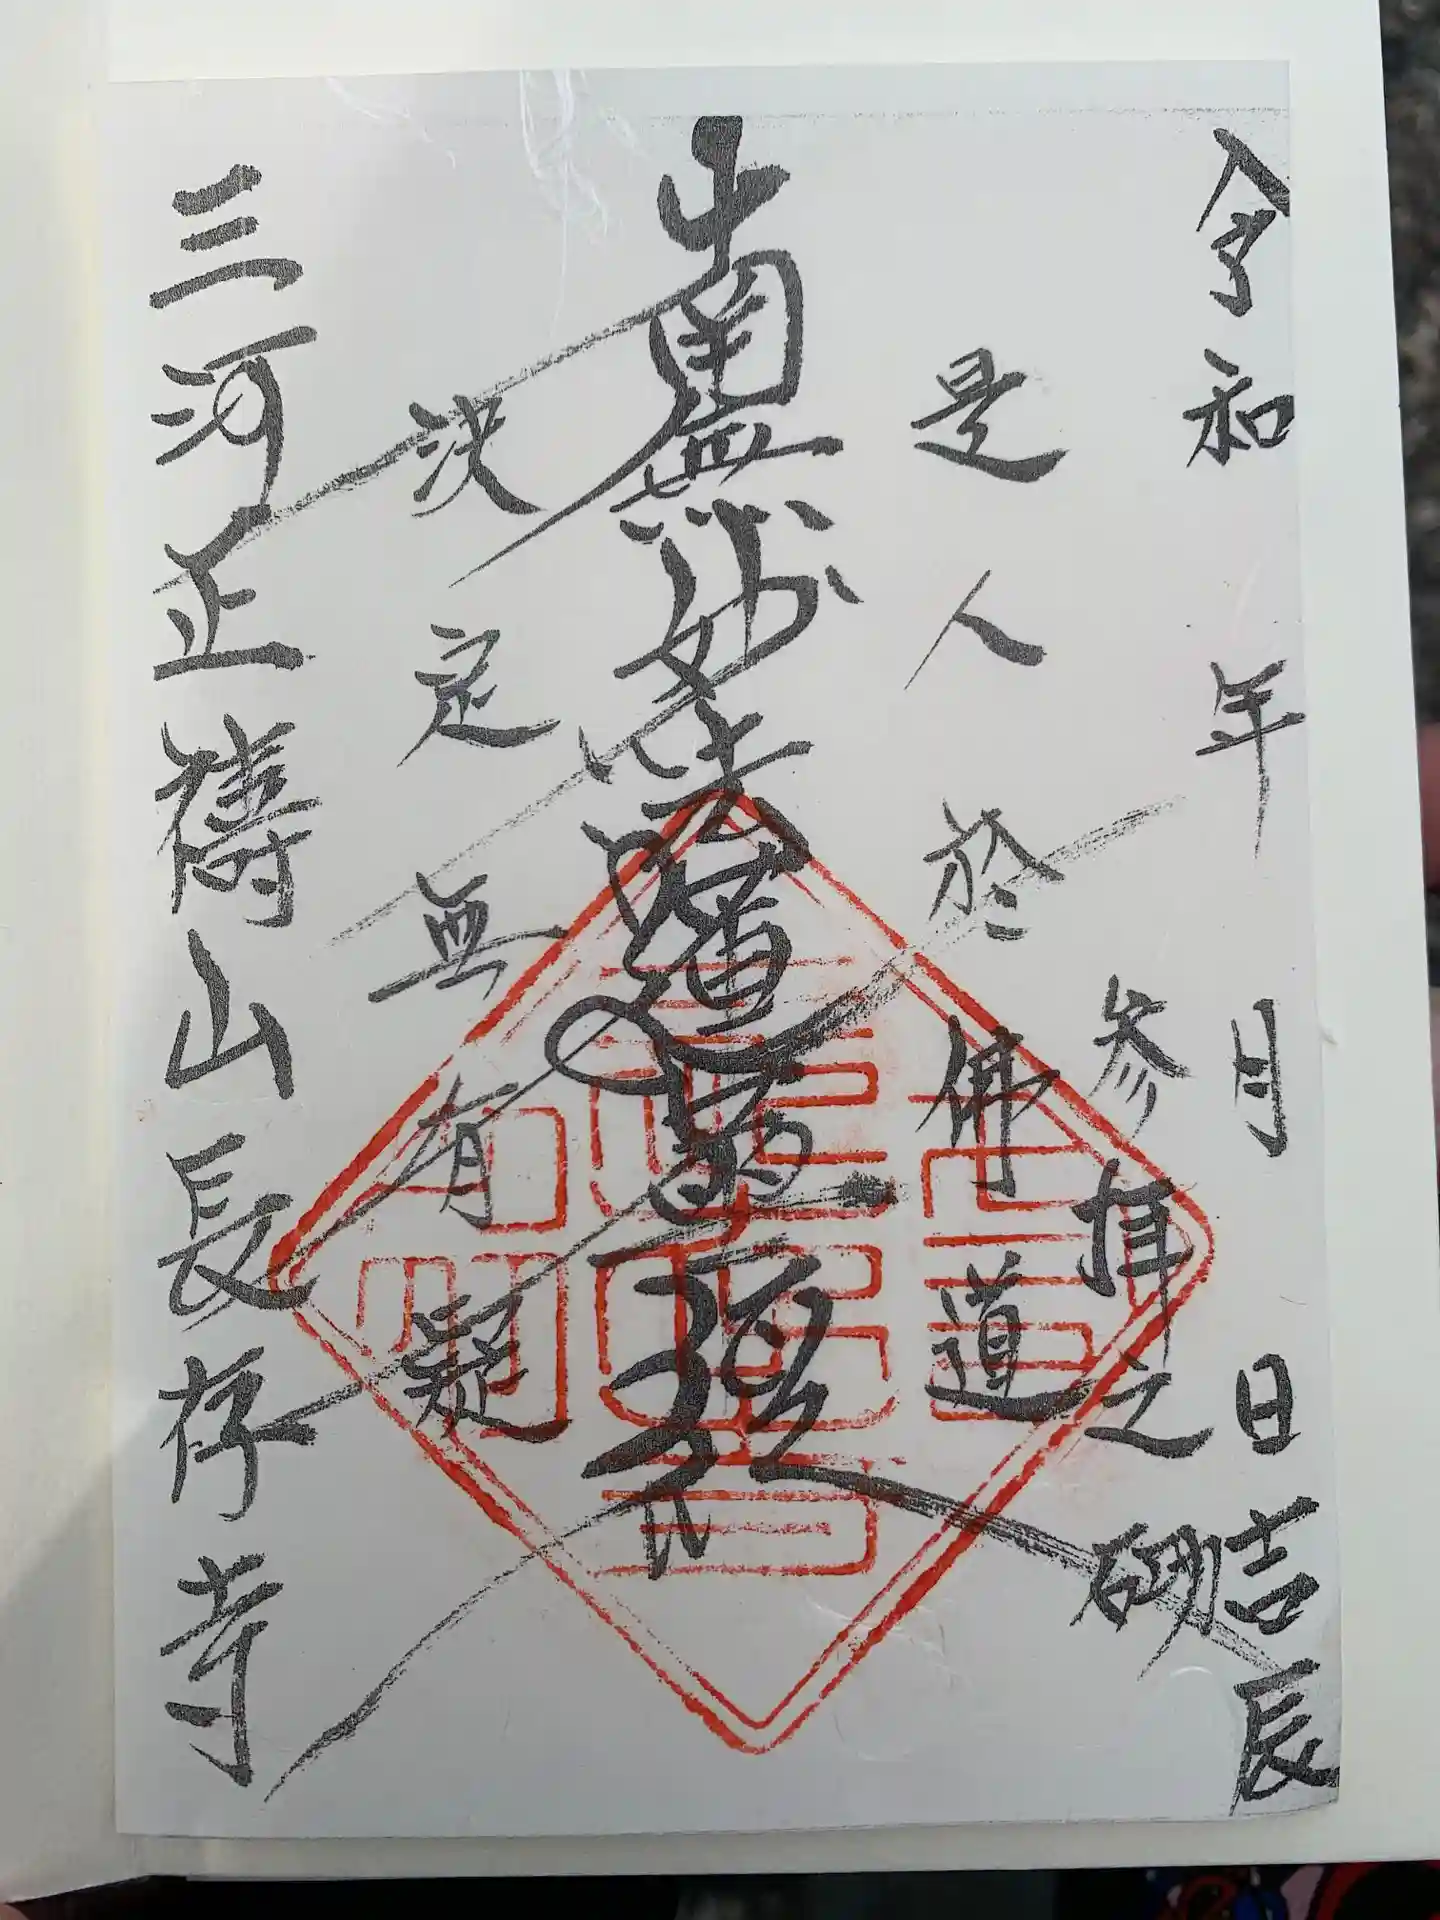 令和 年 月 日吉辰
参拝之砌
是人於佛道
南無妙法蓮華経
決定無有疑
三河正祷山長存寺